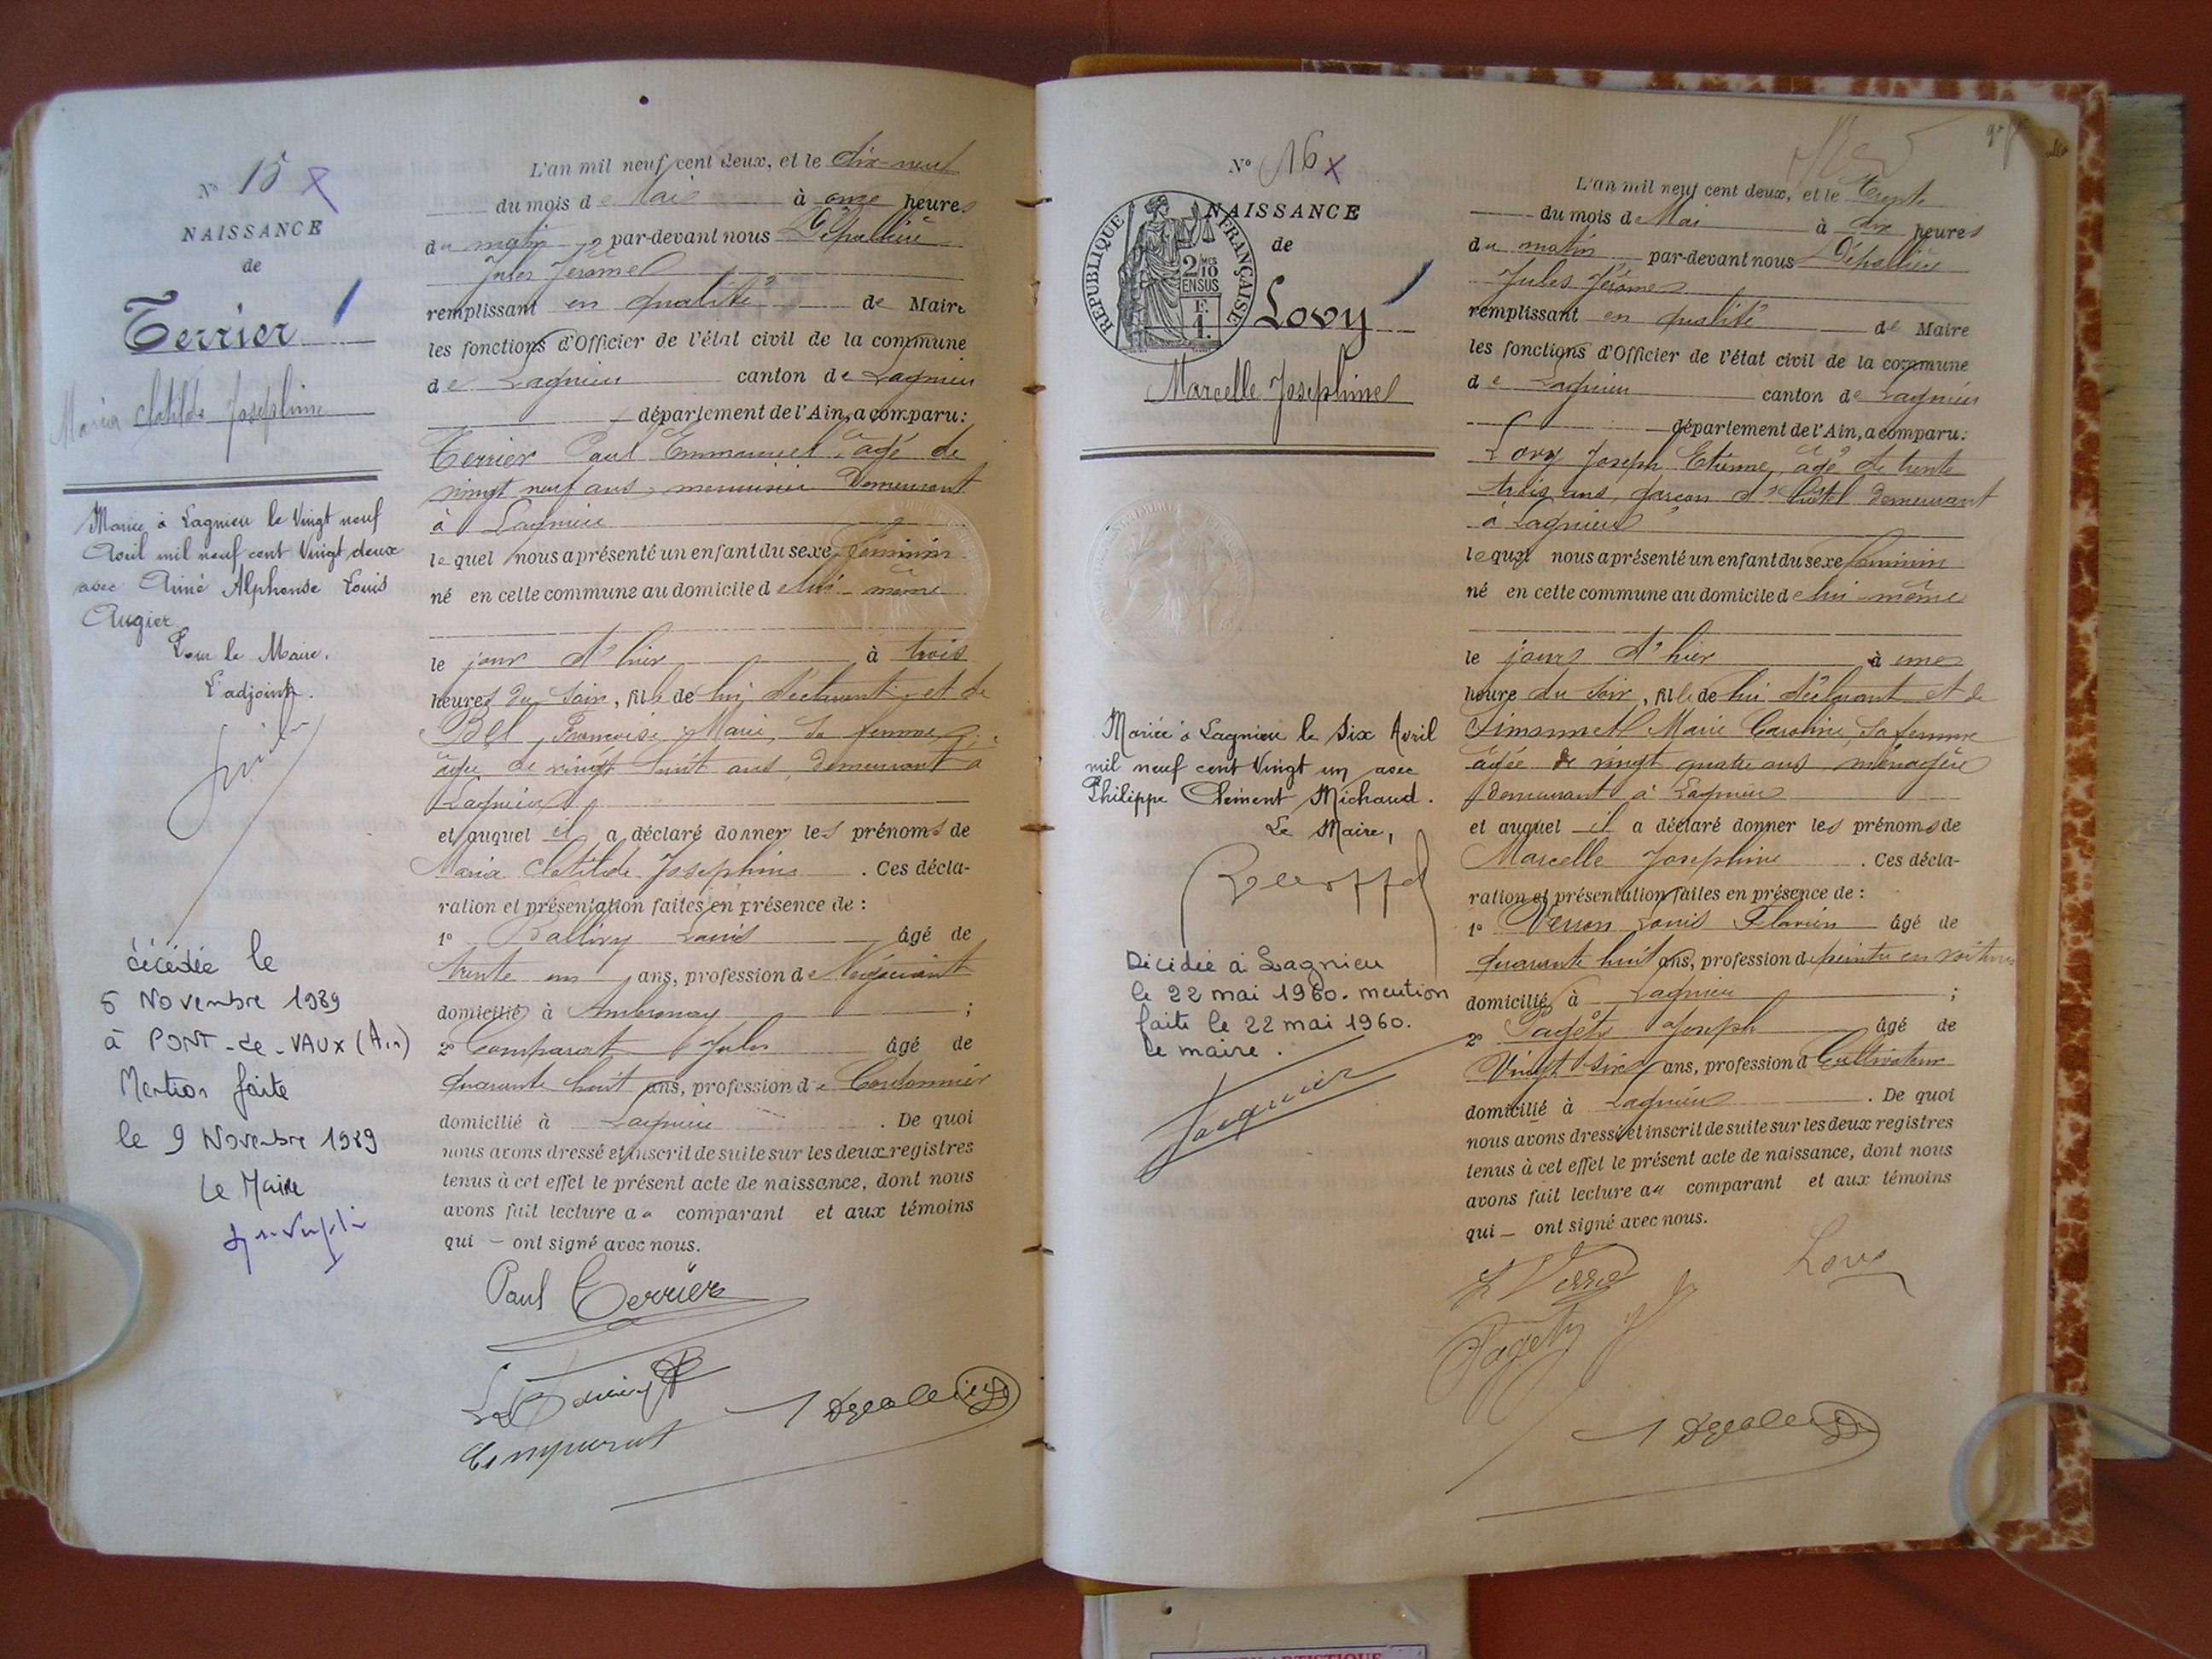 N° 15 X
NAISSANCE
de
Terrier
Maria Clotilde Joséphine
Mariée à Lagnieu le Vingt neuf
Avril mil neuf cent Vingt deux
avec Aimé Alphonse Louis
Augier.
Pour le Maire.
L'adjoint.
décédée le
5 Novembre 1989
à PONT-de-VAUX (Ain)
Mention faite
le 9 Novembre 1989
Le Maire
L'an mil neuf cent deux, et le dix-neuf
du mois de Mai à onze heures
du matin par-devant nous Dépallière
Jules Jérôme
remplissant en qualité de Maire
les fonctions d'Officier de l'état civil de la commune
de Lagnieu canton de Lagnieu
département de l'Ain, a comparu:
Terrier Paul Emmanuel âgé de
vingt neuf ans, menuisier demeurant
à Lagnieu
lequel nous a présenté un enfant du sexe féminin
né en cette commune au domicile de lui-même
le jour d'hier à trois
heures du soir, fille de lui déclarant et de
Bel, Françoise Marie, sa femme
âgée de vingt huit ans, demeurant à
Lagnieu
et auquel il a déclaré donner les prénoms de
Maria Clotilde Joséphine. Ces décla-
ration et présentation faites en présence de :
1° Louis âgé de
trente un ans, profession de Négociant
domicilié à Ambronay ;
2° Comparat Jules âgé de
quarante huit ans, profession de Cordonnier
domicilié à Lagnieu. De quoi
nous avons dressé et inscrit de suite sur les deux registres
tenus à cet effet le présent acte de naissance, dont nous
avons fait lecture au comparant et aux témoins
qui — ont signé avec nous.
Paul Terrier
Comparat
N° 16 X
NAISSANCE
de
RÉPUBLIQUE FRANÇAISE
2/10 EN SUS
F. 1.
Lovy
Marcelle Joséphine
Mariée à Lagnieu le Six Avril
mil neuf cent Vingt un avec
Philippe Clément Michaud.
Le Maire,
Décédée à Lagnieu
le 22 mai 1960. mention
faite le 22 mai 1960.
le maire.
Jacquier
L'an mil neuf cent deux, et le trente
du mois de Mai à dix heures
du matin par-devant nous Dépallière
Jules Jérôme
remplissant en qualité de Maire
les fonctions d'Officier de l'état civil de la commune
de Lagnieu canton de Lagnieu
département de l'Ain, a comparu:
Lovy Joseph Etienne, âgé de trente
trois ans, garçon d'hôtel demeurant
à Lagnieu
lequel nous a présenté un enfant du sexe féminin
né en cette commune au domicile de lui-même
le jour d'hier à une
heure du soir, fille de lui déclarant et de
Simonnet Marie Caroline, sa femme
âgée de vingt quatre ans ménagère
demeurant à Lagnieu
et auquel il a déclaré donner les prénoms de
Marcelle Joséphine. Ces décla-
ration et présentation faites en présence de :
1° Verron Louis Flavien âgé de
quarante huit ans, profession de peintre en voitures
domicilié à Lagnieu ;
2° Pagety Joseph âgé de
Vingt six ans, profession de Cultivateur
domicilié à Lagnieu. De quoi
nous avons dressé et inscrit de suite sur les deux registres
tenus à cet effet le présent acte de naissance, dont nous
avons fait lecture au comparant et aux témoins
qui — ont signé avec nous.
Lovy
Pagety